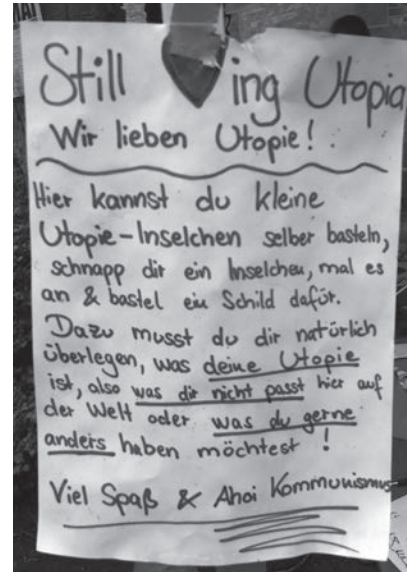 Still ing Utopia
Wir lieben Utopie!
Hier kannst du kleine
Utopie-Inselchen selber basteln,
schnapp dir ein Inselchen, mal es
an & bastel ein Schild dafür.
Dazu musst du dir natürlich
überlegen, was deine Utopie
ist, also was dir nicht passt hier auf
der Welt oder was du gerne
anders haben möchtest!
Viel Spaß & Ahoi Kommunismus